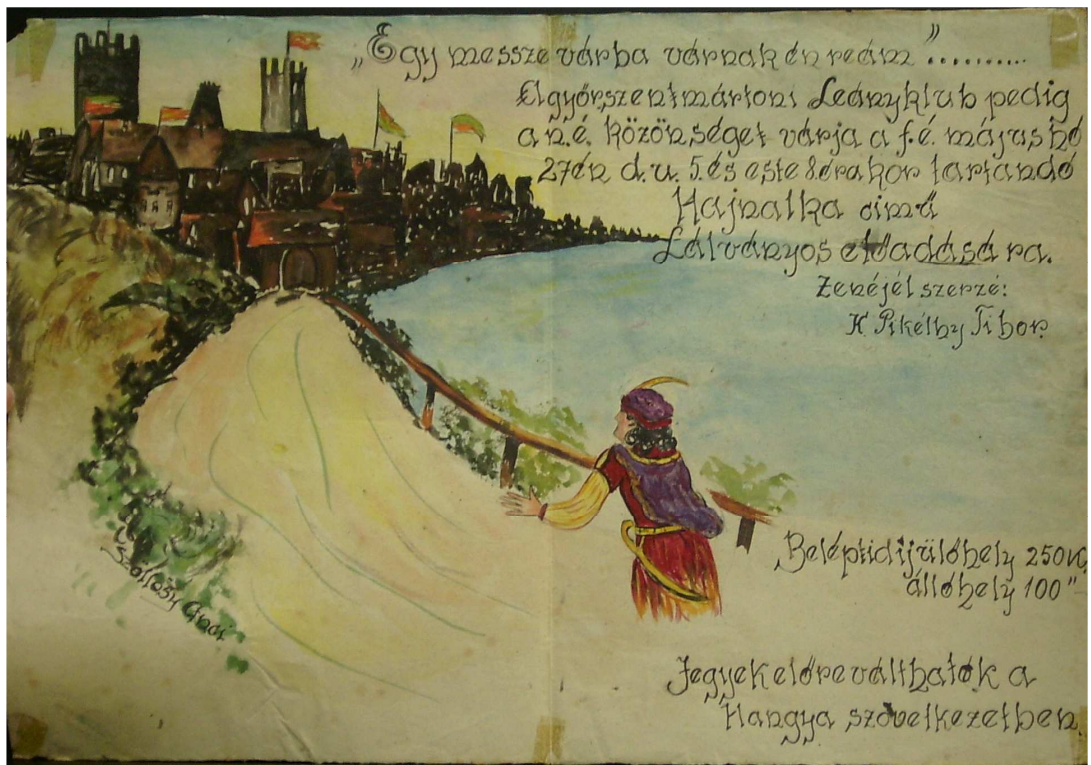 „Egy messze várba várnak én reám”..........
A győrszentmártoni Leányklub pedig
a n.é. közönséget várja a f.é. május hó
27én d.u. 5. és este 8 órakor tartandó
Hajnalka cimű
Látványos előadására.
Zenéjét szerzé:
K Pikéthy Tibor.
Beléptidij: ülőhely 250 K.
állóhely 100 "
Jegyek előre válthatók a
Hangya szövetkezetben.
Szőllősy